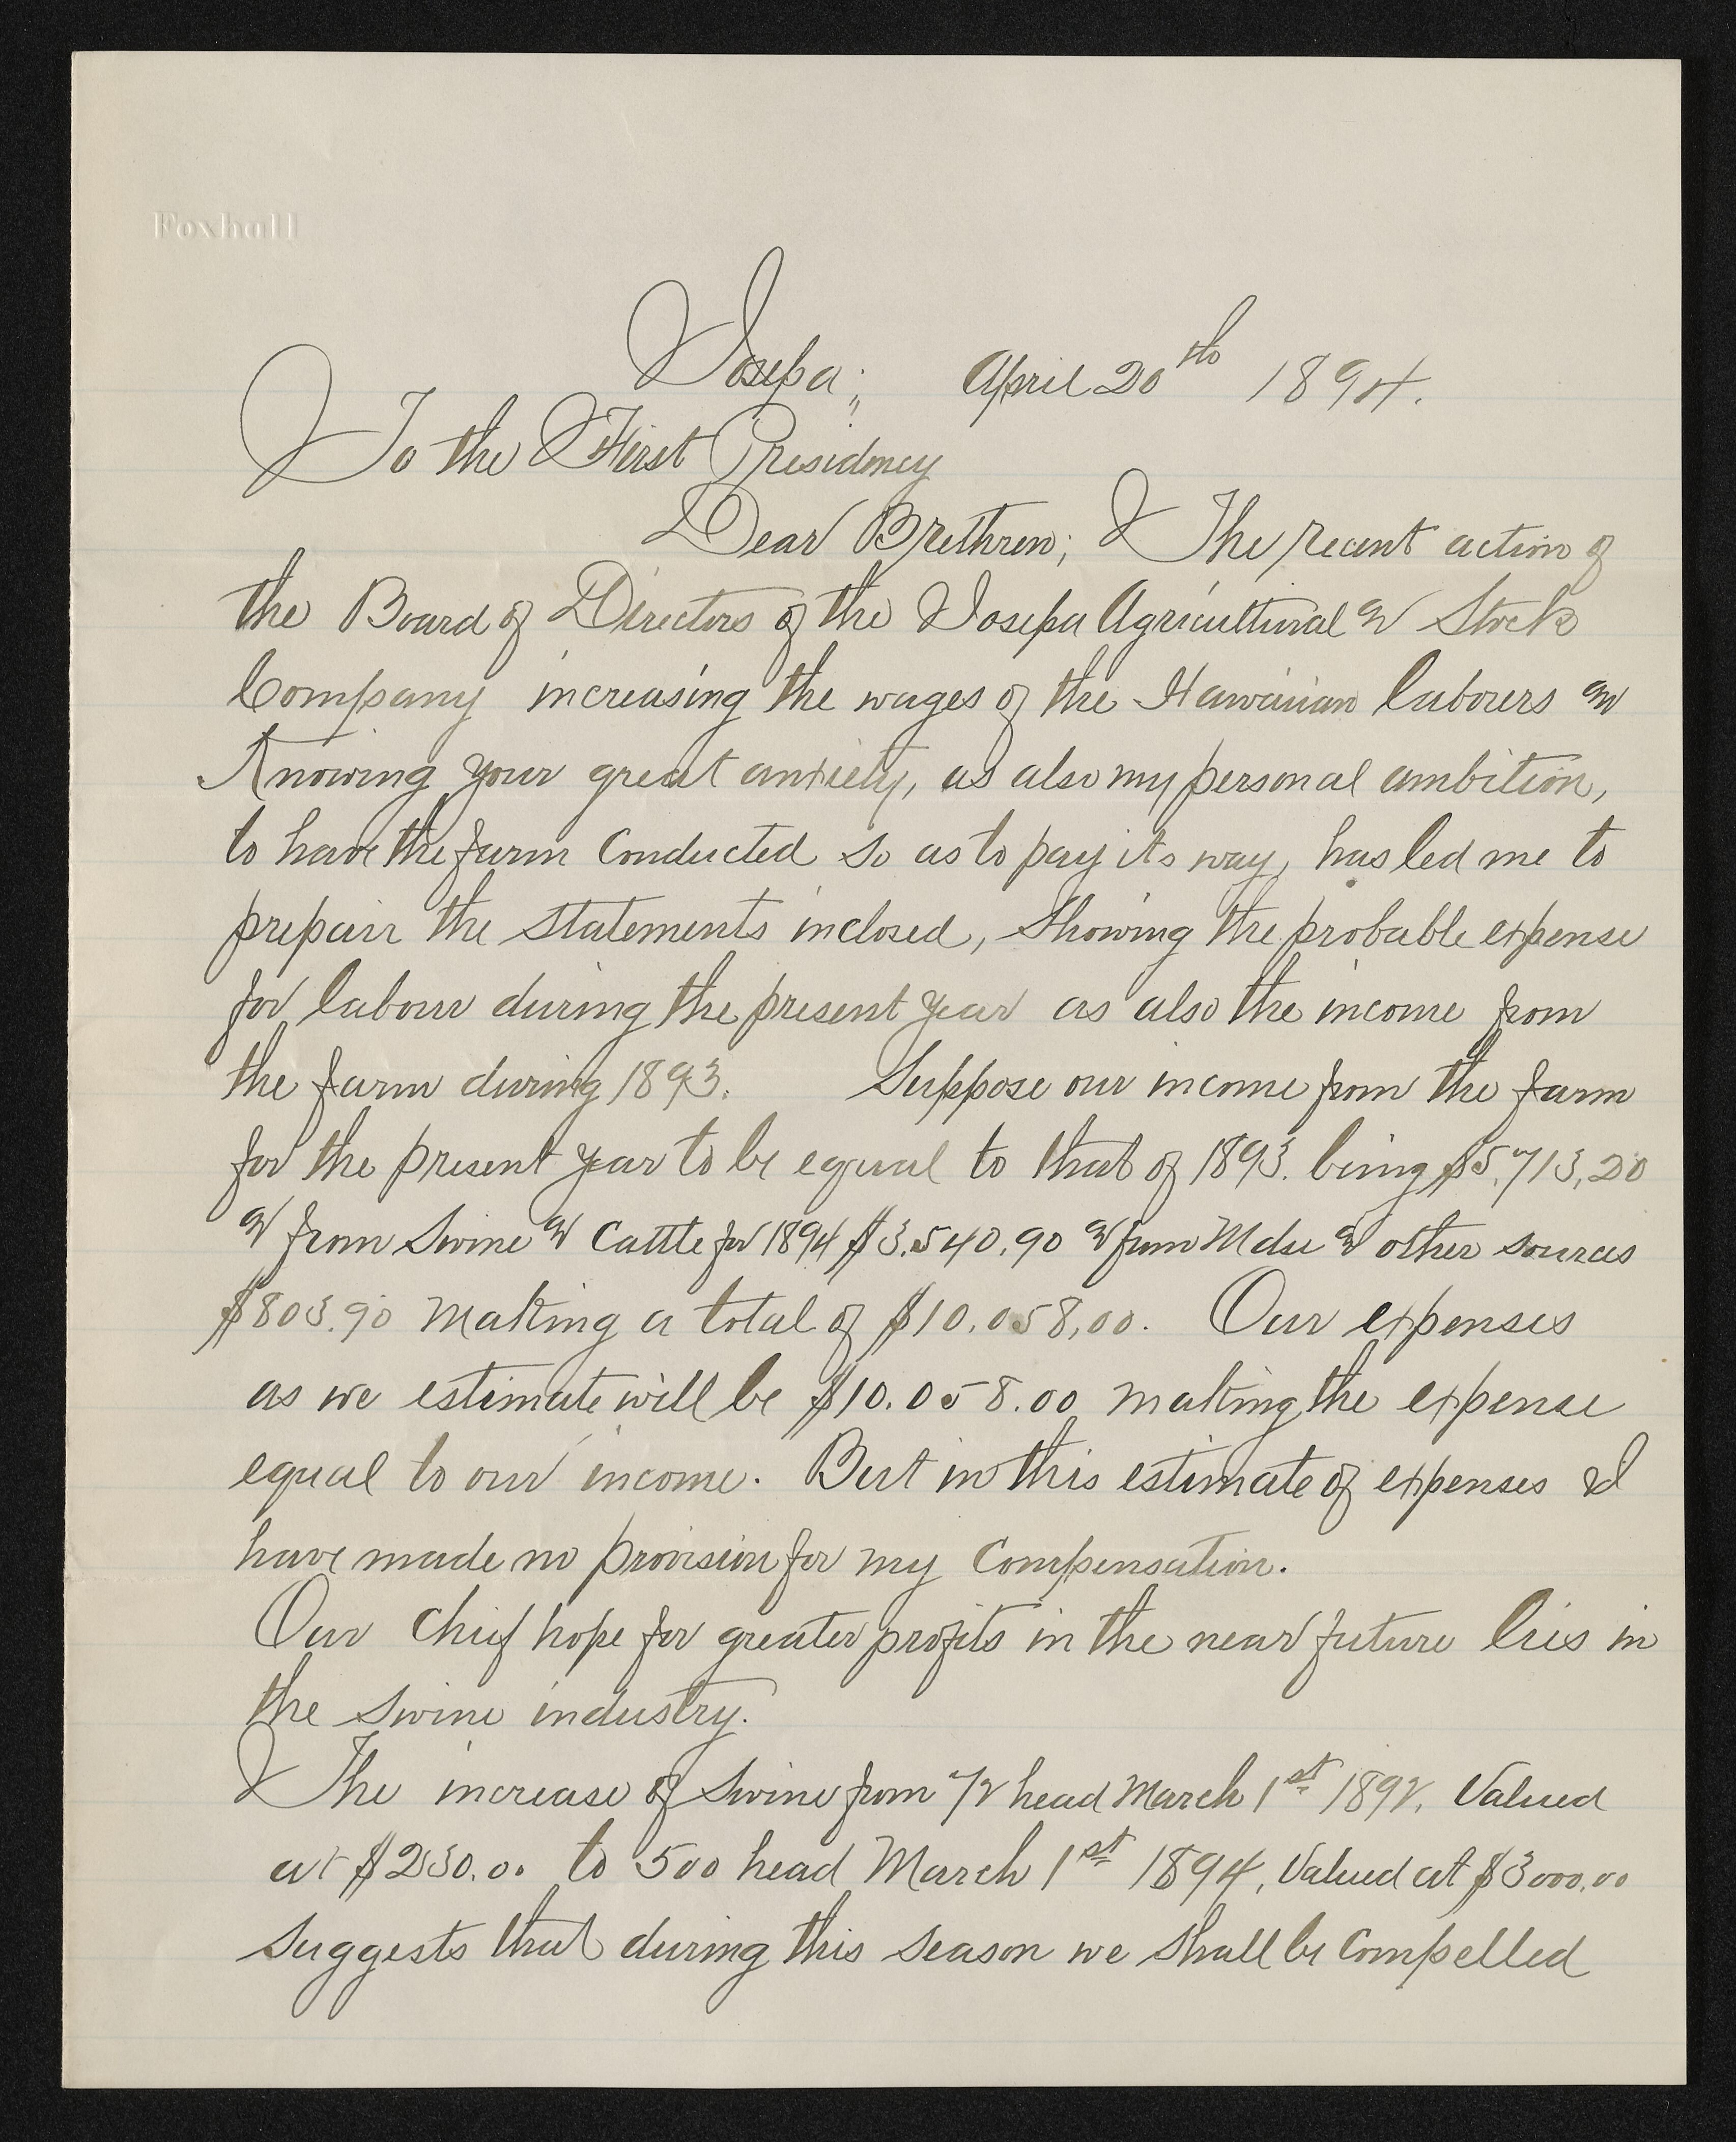 Foxhall
Iosepa; April 20th 1894.
To the First Presidency
Dear Brethren; The recent action of
the Board of Directors of the Iosepa Agricultural & Stock
Company increasing the wages of the Hawaiian laborers &
Knowing your great anxiety, as also my personal ambition,
to have the farm Conducted so as to pay its way, has led me to
prepair the statements inclosed, showing the probable expense
for labour during the present year as also the income from
the farm during 1893. Suppose our income from the farm
for the present year to be equal to that of 1893. being $5,713,20
& from Swine & Cattle for 1894 $3.540.90 & from Mdse & other sources
$803.90 making a total of $10.058,00. Our expenses
as we estimate will be $10.058.00 making the expense
equal to our income. But in this estimate of expenses I
have made no provision for my Compensation.
Our Chief hope for greater profits in the near future lies in
the swine industry.
The increase of Swine from 72 head March 1st 1892, Valued
at $230.00 to 500 head March 1st 1894, Valued at $3000.00
suggests that during this season we shall be Compelled